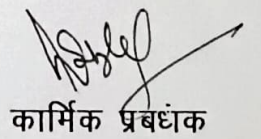 कार्मिक प्रबंधक